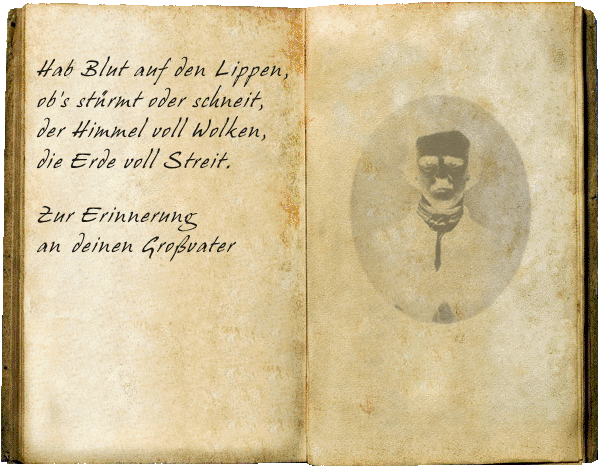 Hab Blut auf den Lippen,
ob's stürmt oder schneit,
der Himmel voll Wolken,
die Erde voll Streit.
Zur Erinnerung
an deinen Großvater